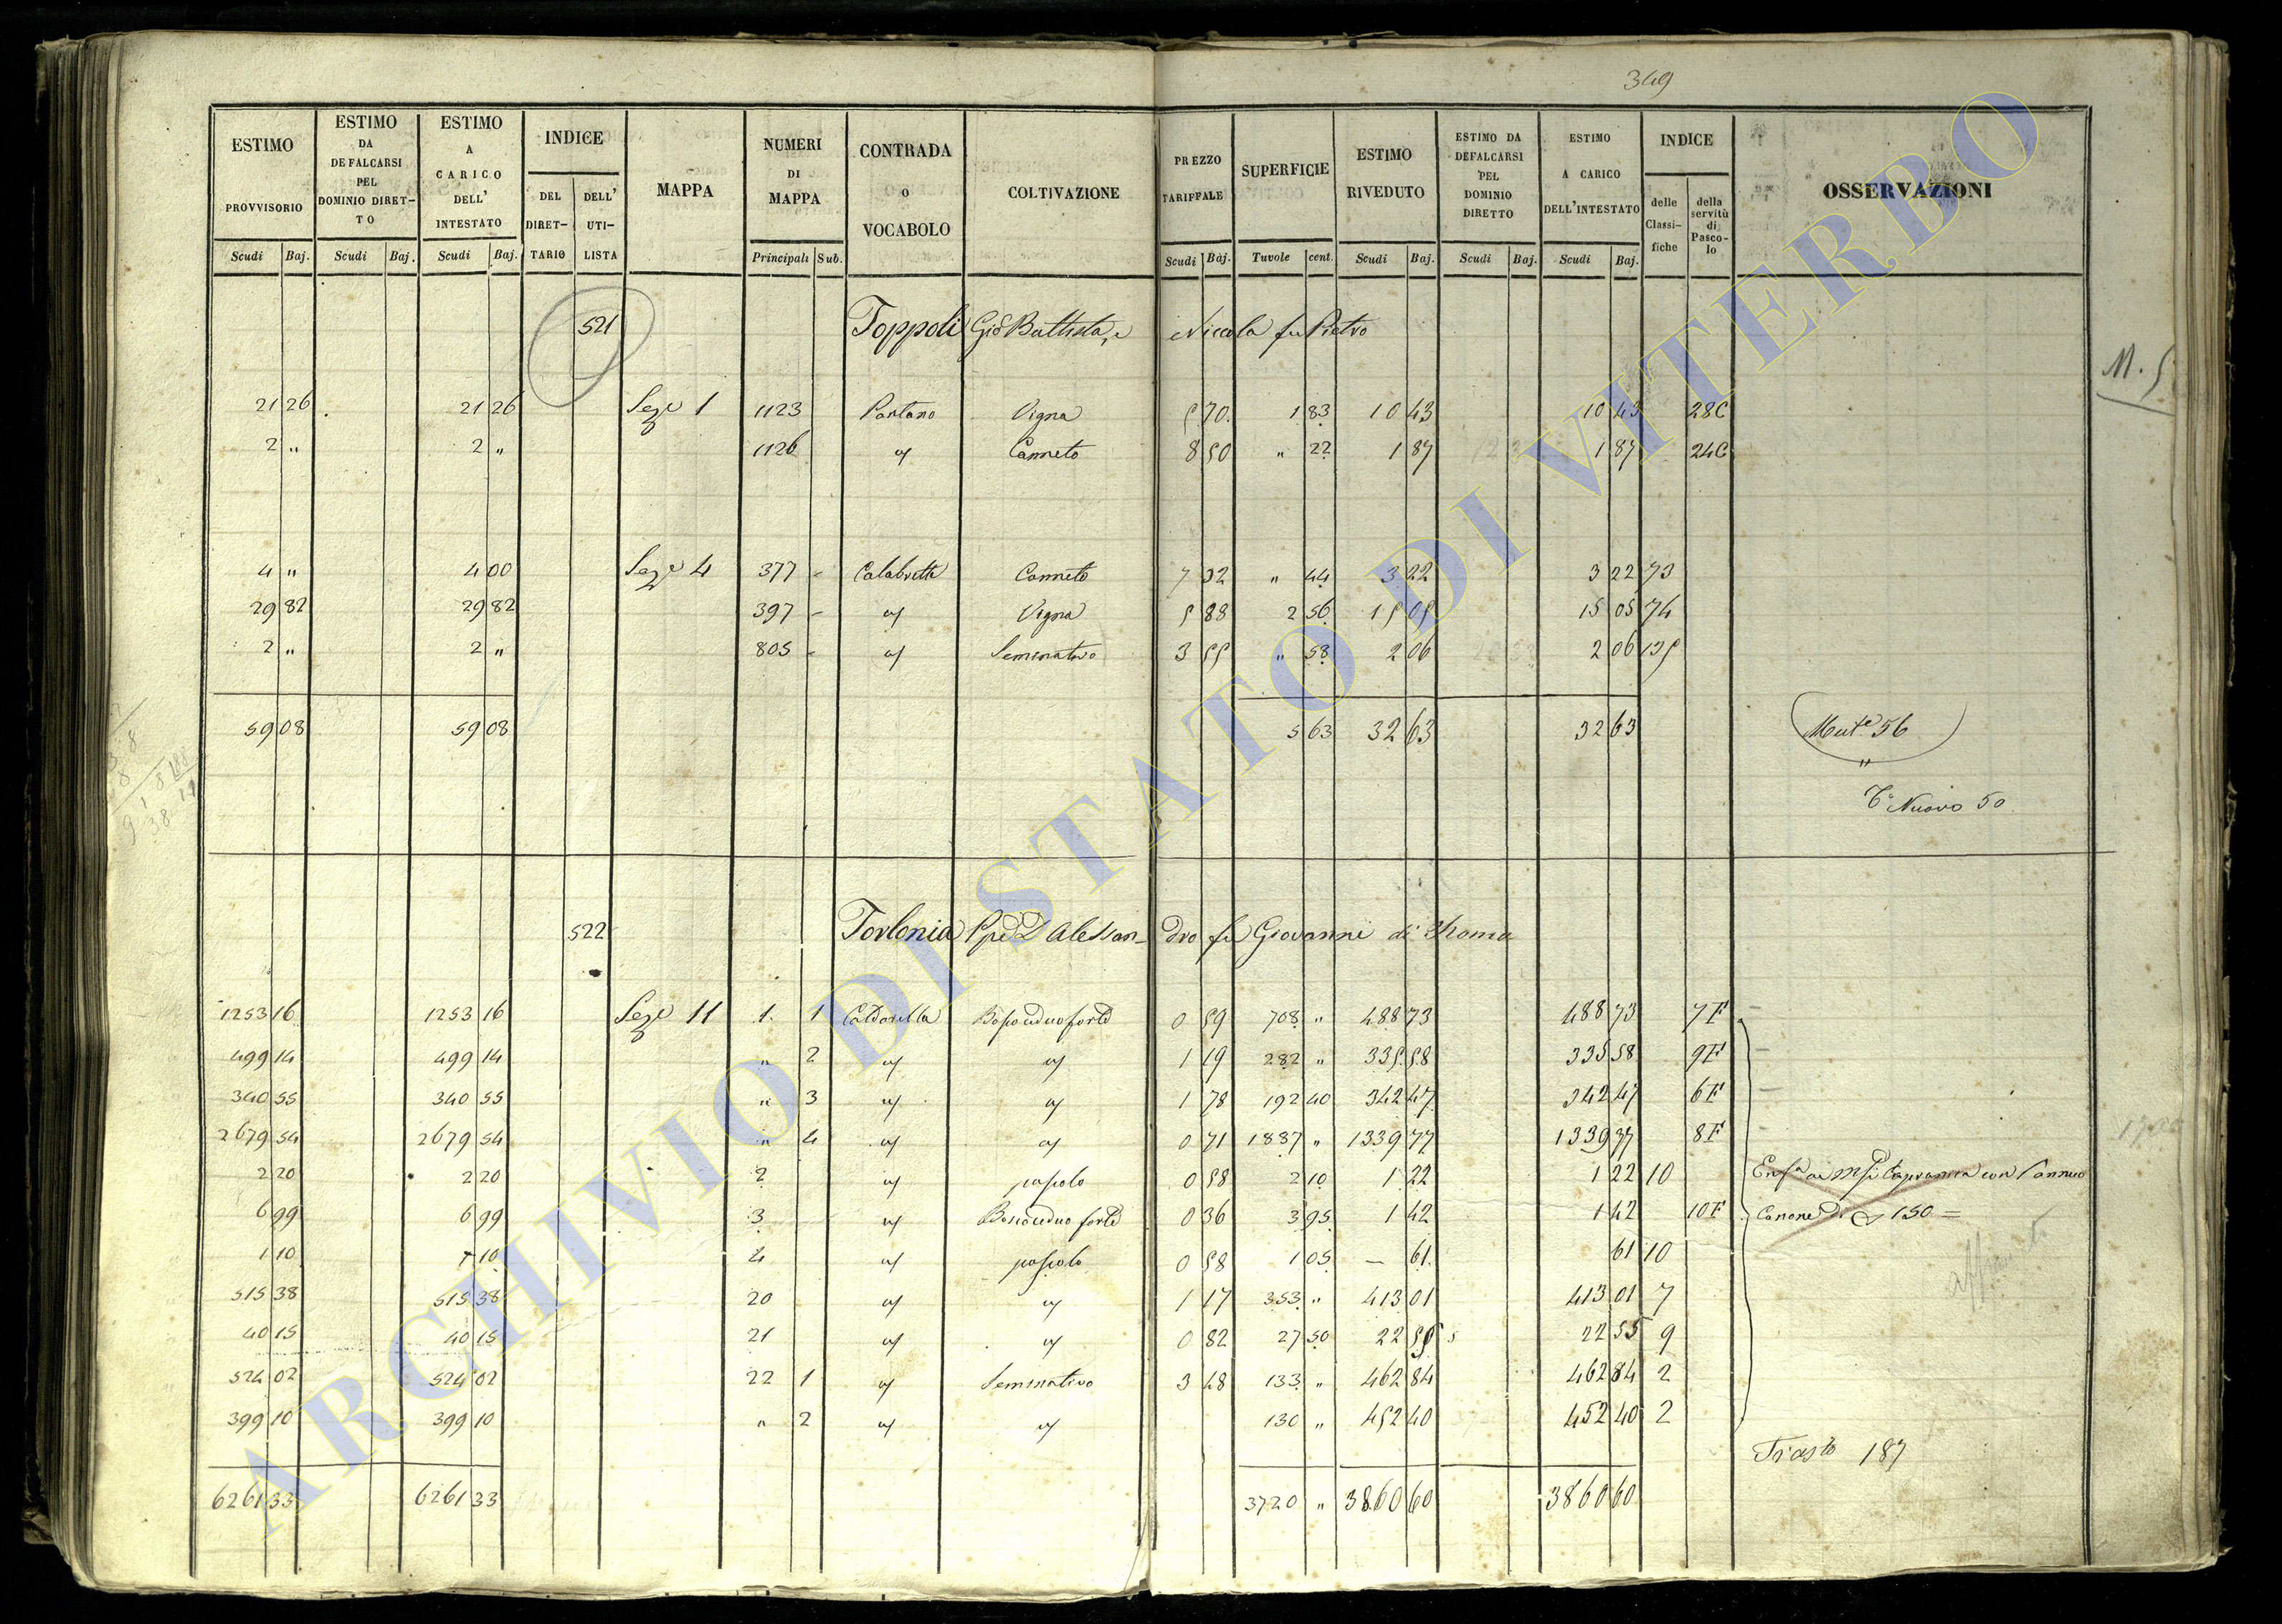 349
ESTIMO PROVVISORIO Scudi Baj.
ESTIMO DA DEFALCARSI PEL DOMINIO DIRETTO Scudi Baj.
ESTIMO A CARICO DELL' INTESTATO Scudi Baj.
INDICE DEL DIRETTARIO DELL' UTILISTA
MAPPA
NUMERI DI MAPPA Principali Sub.
CONTRADA O VOCABOLO
COLTIVAZIONE
PREZZO TARIFFALE Scudi Baj.
SUPERFICIE Tavole cent.
ESTIMO RIVEDUTO Scudi Baj.
ESTIMO DA DEFALCARSI PEL DOMINIO DIRETTO Scudi Baj.
ESTIMO A CARICO DELL'INTESTATO Scudi Baj.
INDICE delle Classifiche della servitù di Pascolo
OSSERVAZIONI
521 Toppoli Gio Battista, e Niccola fu Pietro
M. 5
21 26 21 26 Sezе 1 1123 Pantano Vigna 5 70 1 83 10 43 10 43 28C
2 " 2 " 1126 " Canneto 8 50 " 22 1 87 1 87 24C
4 " 4 00 Seze 4 377 - Calabrette Canneto 7 32 " 44 3 22 3 22 73
29 82 29 82 397 - " Vigna 5 88 2 56 15 05 15 05 74
2 " 2 " 805 - " Seminativo 3 55 " 58 2 06 2 06 135
59 08 59 08 5 63 32 63 32 63 Mute 56
"
Co Nuovo 50
522 Torlonia Ppe D Alessandro fu Giovanni di Roma
1253 16 1253 16 Seze 11 1 1 Caldarella Bosco ceduo forte 0 59 708 " 488 73 488 73 7F
499 14 499 14 " 2 " " 1 19 282 " 335 58 335 58 9F
340 55 340 55 " 3 " " 1 78 192 40 342 47 342 47 6F
2679 54 2679 54 " 4 " " 0 71 1887 " 1339 77 1339 77 8F
2 20 2 20 2 " pascolo 0 58 2 10 1 22 1 22 10 Enfa ai Capranica con l'annuo
6 99 6 99 3 " Bosco ceduo forte 0 36 3 95 1 42 1 42 10F Canone di 150 =
1 10 1 10 4 " pascolo 0 58 1 05 - 61 61 10
515 38 515 38 20 " " 1 17 353 " 413 01 413 01 7
40 15 40 15 21 " " 0 82 27 50 22 55 22 55 9
524 02 524 02 22 1 " Seminativo 3 48 133 " 462 84 462 84 2
399 10 399 10 " 2 " " 130 " 452 40 452 40 2
Trasto 187
6261 33 6261 33 3720 " 3860 60 3860 60
ARCHIVIO DI STATO DI VITERBO